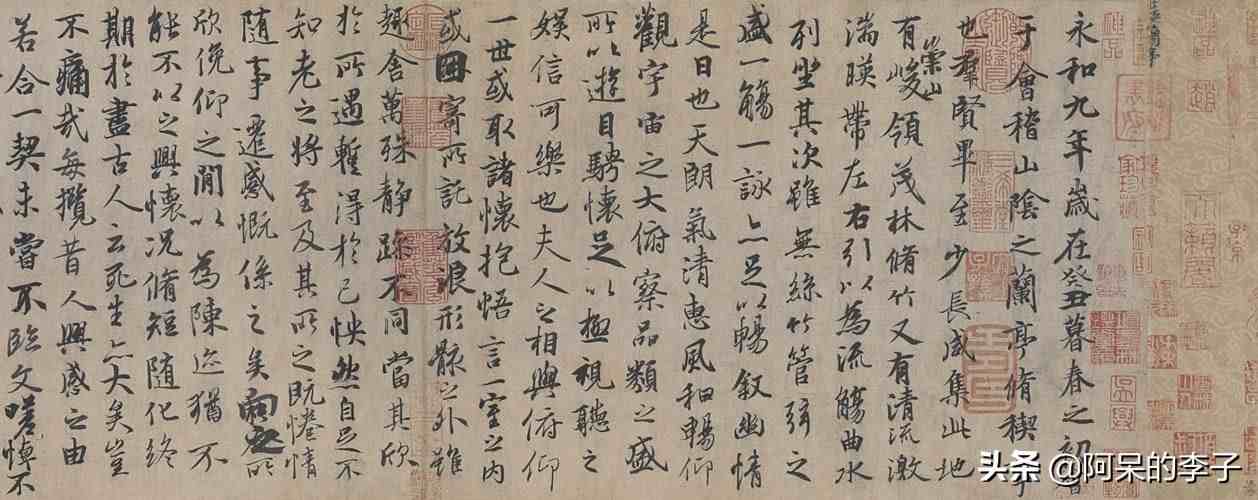 永和九年歲在癸丑暮春之初會
于會稽山陰之蘭亭脩禊事
也羣賢畢至少長咸集此地
有崇山峻領茂林脩竹又有清流激
湍暎帶左右引以為流觴曲水
列坐其次雖無絲竹管弦之
盛一觴一詠亦足以暢叙幽情
是日也天朗氣清惠風和暢仰
觀宇宙之大俯察品類之盛
所以遊目騁懷足以極視聽之
娛信可樂也夫人之相與俯仰
一世或取諸懷抱悟言一室之內
或因寄所託放浪形骸之外雖
趣舍萬殊靜躁不同當其欣
於所遇暫得於己怏然自足不
知老之將至及其所之既惓情
隨事遷感慨係之矣向之所
欣俛仰之閒以為陳迹猶不
能不以之興懷況脩短隨化終
期於盡古人云死生亦大矣豈
不痛哉每攬昔人興感之由
若合一契未嘗不臨文嗟悼不
头条 @阿呆的李子